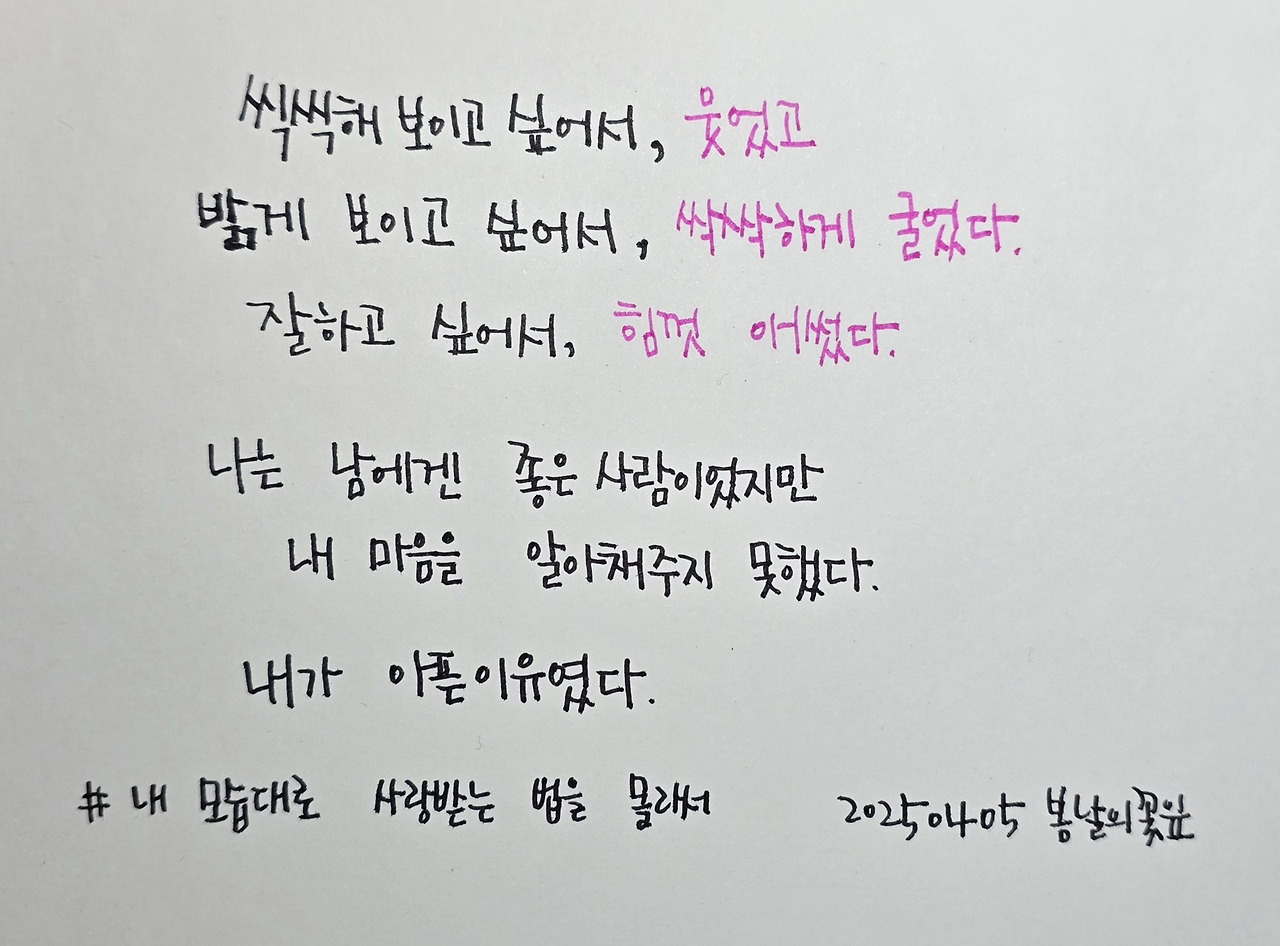 씩씩해 보이고 싶어서, 웃었고
밝게 보이고 싶어서, 싹싹하게 굴었다.
잘하고 싶어서, 힘껏 애썼다.
나는 남에겐 좋은 사람이었지만
내 마음을 알아채주지 못했다.
내가 아픈이유였다.
# 내 모습대로 사랑받는 법을 몰라서 20250405 봄날의꽃잎